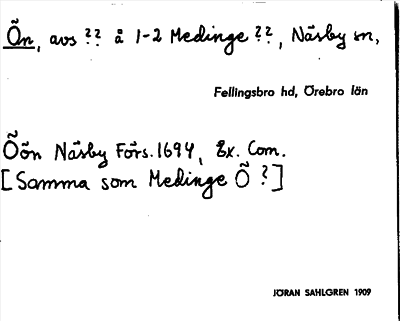 Õn, avs ?? å 1-2 Medinge ??, Näsby sn,
Fellingsbro hd, Örebro län
Õön Näsby Förs. 1694, Ex. Com.
[Samma som Medinge Õ ?]
JÖRAN SAHLGREN 1909